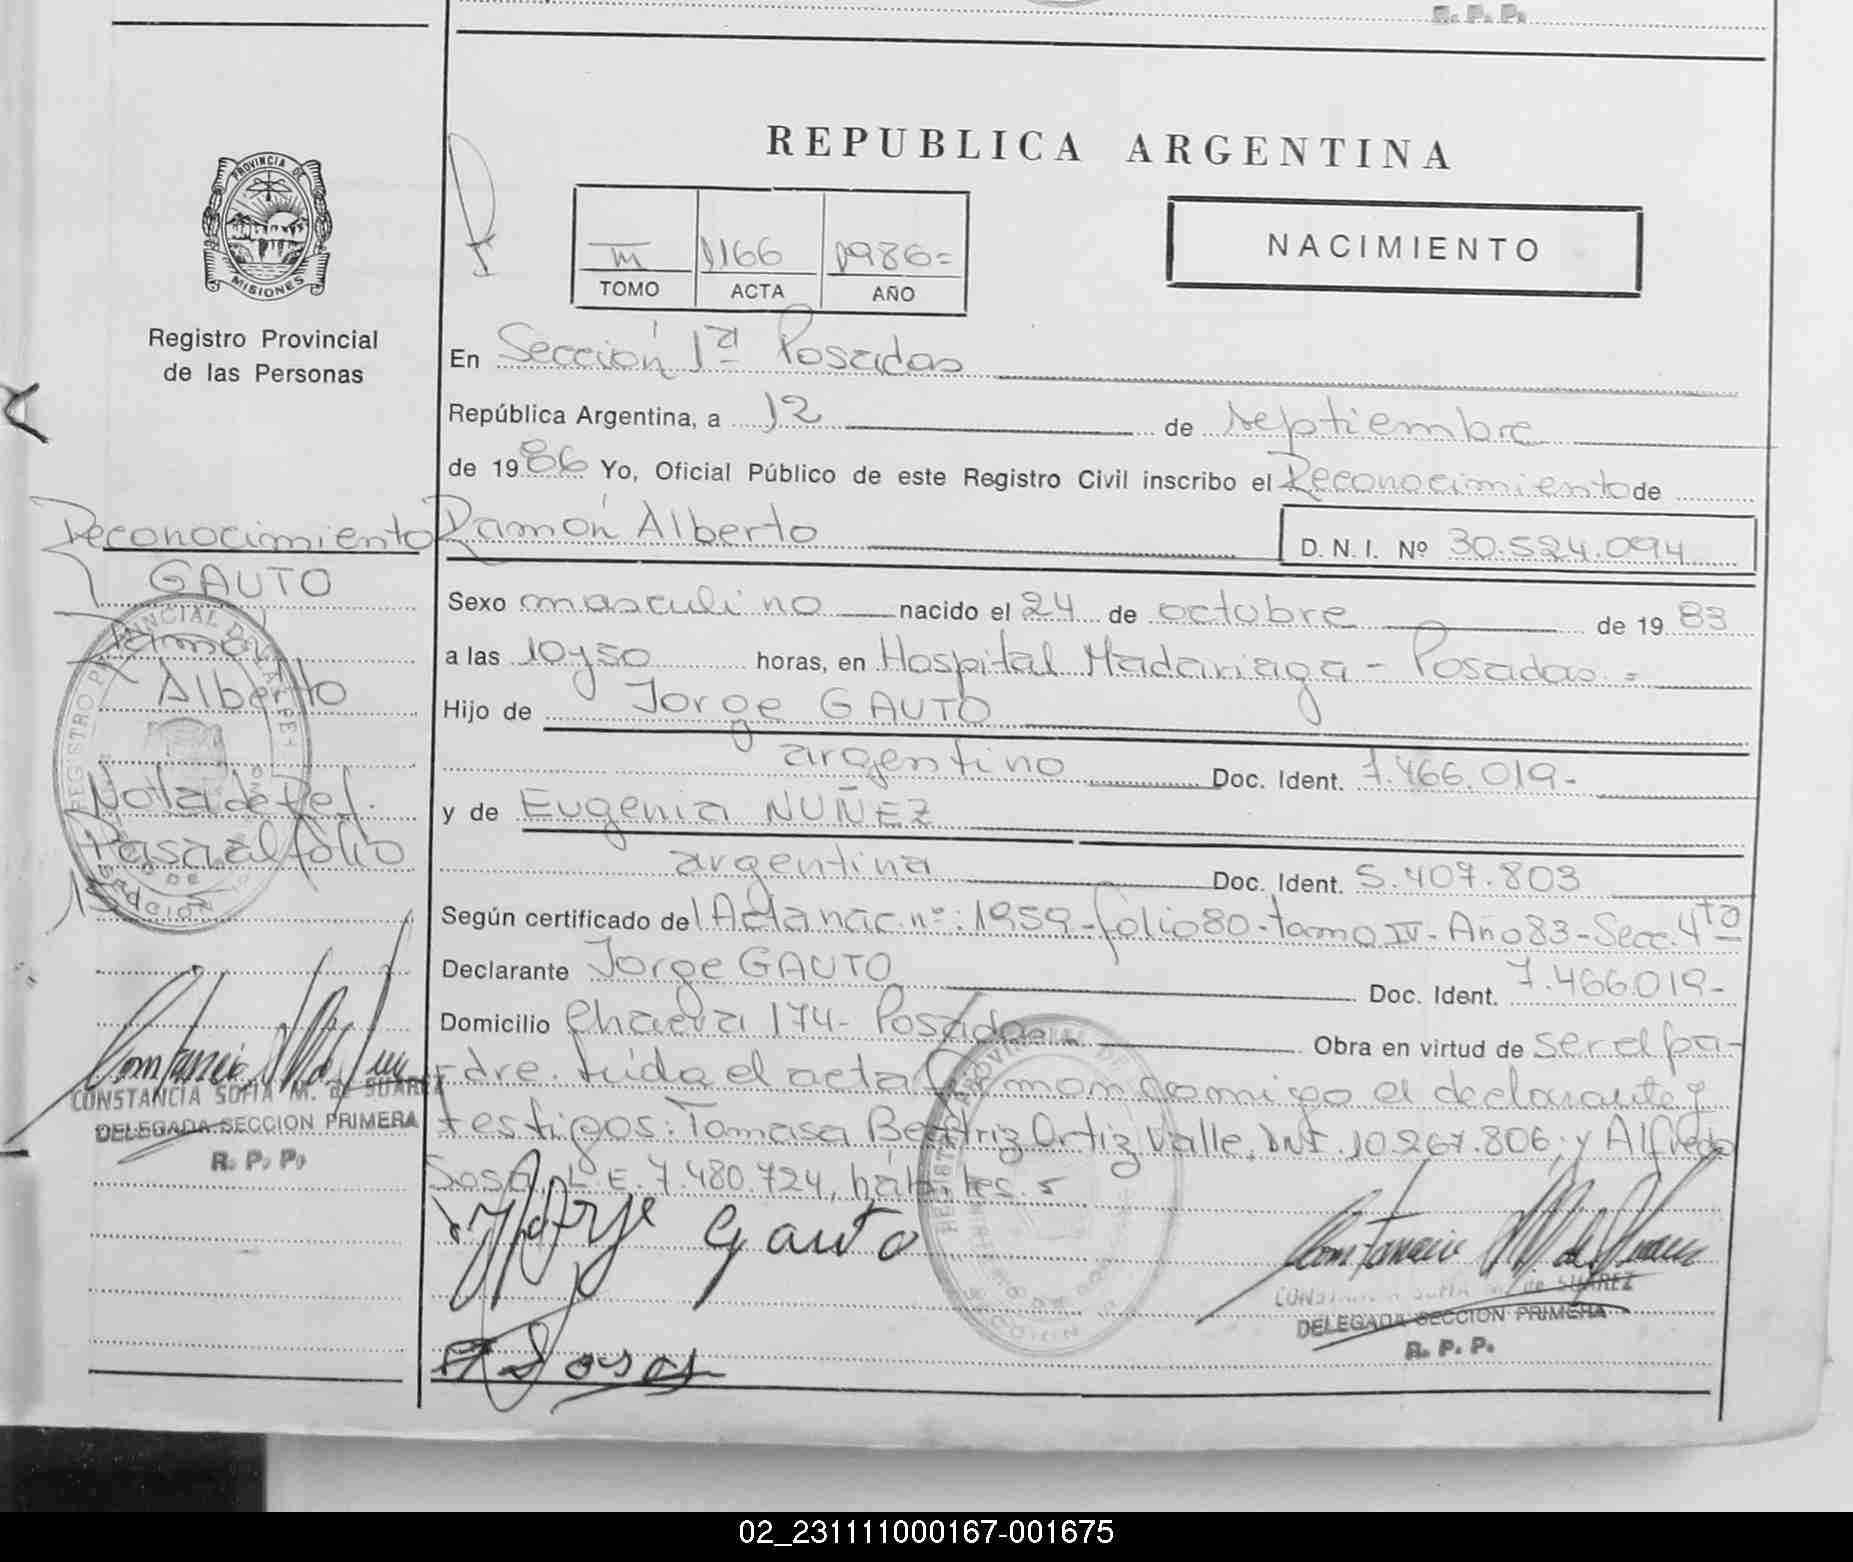 R. P. P.
REPUBLICA ARGENTINA
PROVINCIA DE
MISIONES
Registro Provincial
de las Personas
III 1166 1986=
TOMO ACTA AÑO
NACIMIENTO
En Sección 1ª Posadas
República Argentina, a 12 de septiembre
de 1986 Yo, Oficial Público de este Registro Civil inscribo el Reconocimiento de
Ramón Alberto D. N. I. Nº 30.524.094
Sexo masculino nacido el 24 de octubre de 1983
a las 10y50 horas, en Hospital Madariaga - Posadas.=
Hijo de Jorge GAUTO
argentino Doc. Ident. 7.466.019-
y de Eugenia NUÑEZ
argentina Doc. Ident. 5.407.803
Según certificado del Acta nac. nº: 1959-folio 80-tomo IV-Año 83-Secc. 4ta
Declarante Jorge GAUTO Doc. Ident. 7.466.019-
Domicilio 174- Posadas Obra en virtud de ser el pa-
dre. Leída el acta firman conmigo el declarante y
testigos: Tomasa Beatriz Ortiz Valle, DNI. 10.267.806; y Alfredo
Sosa, L.E. 7.480.724, hábiles.
Jorge Gauto
A Sosa
CONSTANCIA SOFIA M. de SUAREZ
DELEGADA SECCION PRIMERA
R. P. P.
Reconocimiento
GAUTO
Ramón
Alberto
Nota de Ref.
Pasa al folio
CONSTANCIA SOFIA M. de SUAREZ
DELEGADA SECCION PRIMERA
R. P. P.
02_231111000167-001675